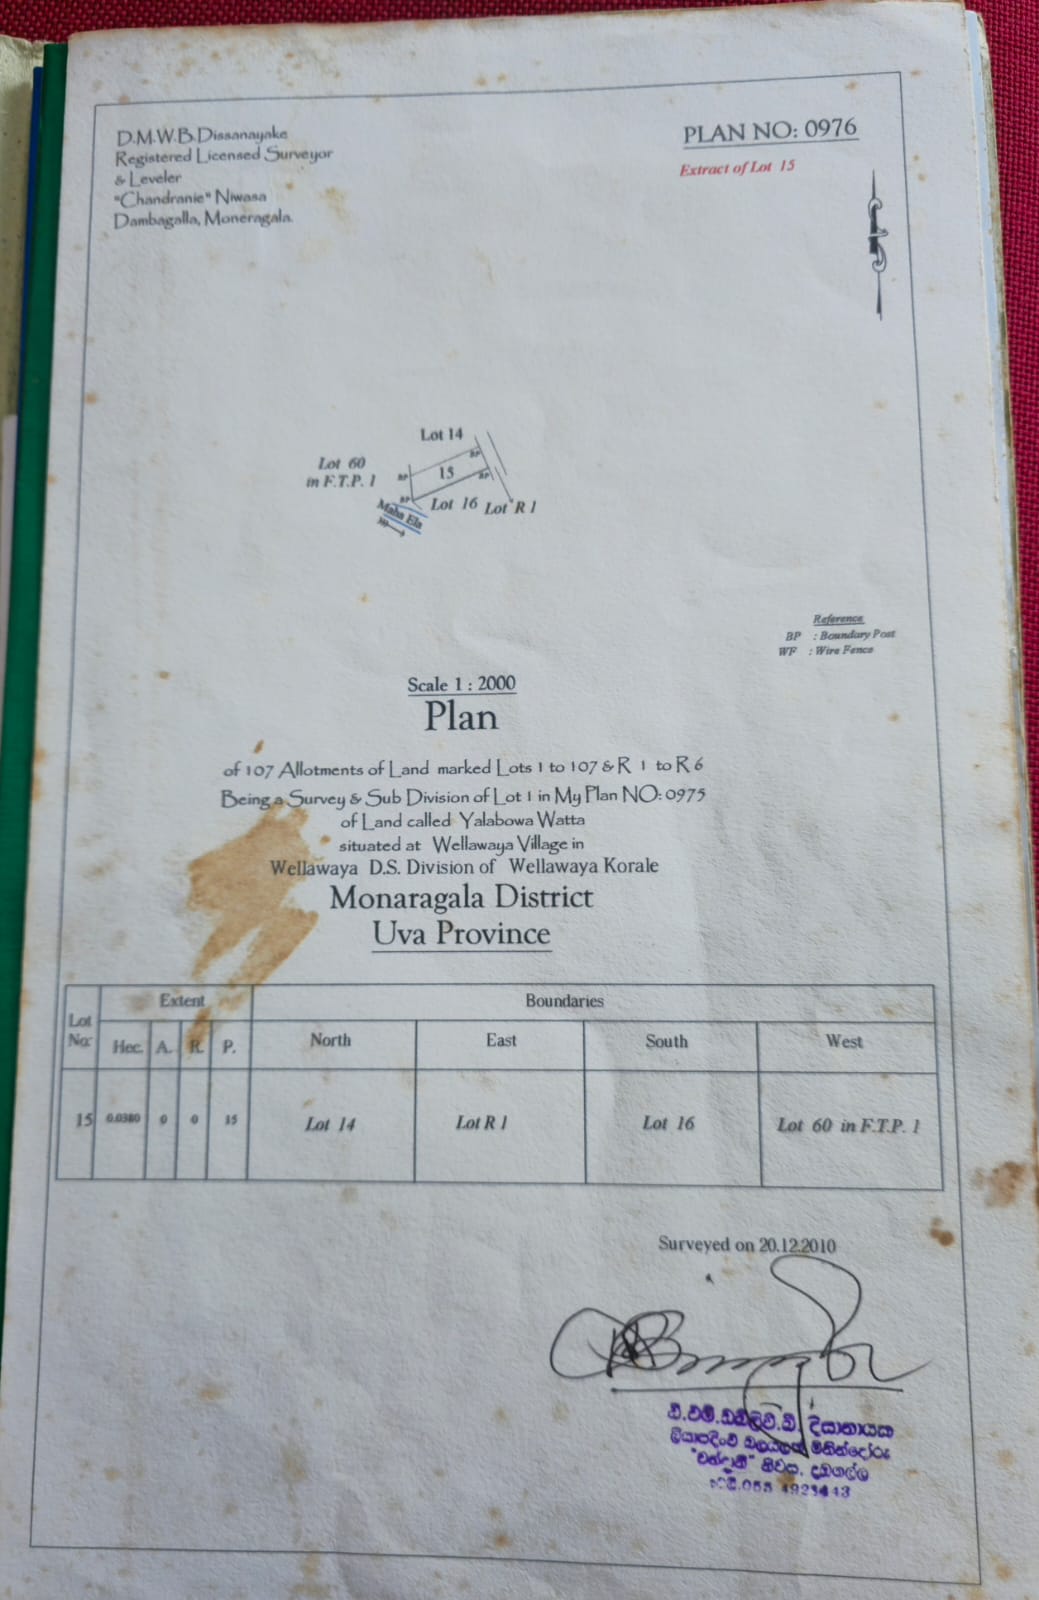 D.M.W.B.Dissanayake
Registered Licensed Surveyor
& Leveler
"Chandranie" Niwasa
Dambagalla, Moneragala.
PLAN NO: 0976
Extract of Lot 15
Lot 14
Lot 60
in F.T.P. 1
BP
15
BP
BP
BP
Lot 16
Lot R 1
Maha Ela
Reference
BP : Boundary Post
WF : Wire Fence
Scale 1 : 2000
Plan
of 107 Allotments of Land marked Lots 1 to 107 & R 1 to R 6
Being a Survey & Sub Division of Lot 1 in My Plan NO: 0975
of Land called Yalabowa Watta
situated at Wellawaya Village in
Wellawaya D.S. Division of Wellawaya Korale
Monaragala District
Uva Province
Lot No: Extent Boundaries
Hec. A. R. P. North East South West
15 0.0380 0 0 15 Lot 14 Lot R 1 Lot 16 Lot 60 in F.T.P. 1
Surveyed on 20.12.2010
ඩී.එම්.ඩබ්ලිව්.බී. දිසානායක
ලියාපදිංචි බලයලත් මිනින්දෝරු
නිවස, දඹගල්ල